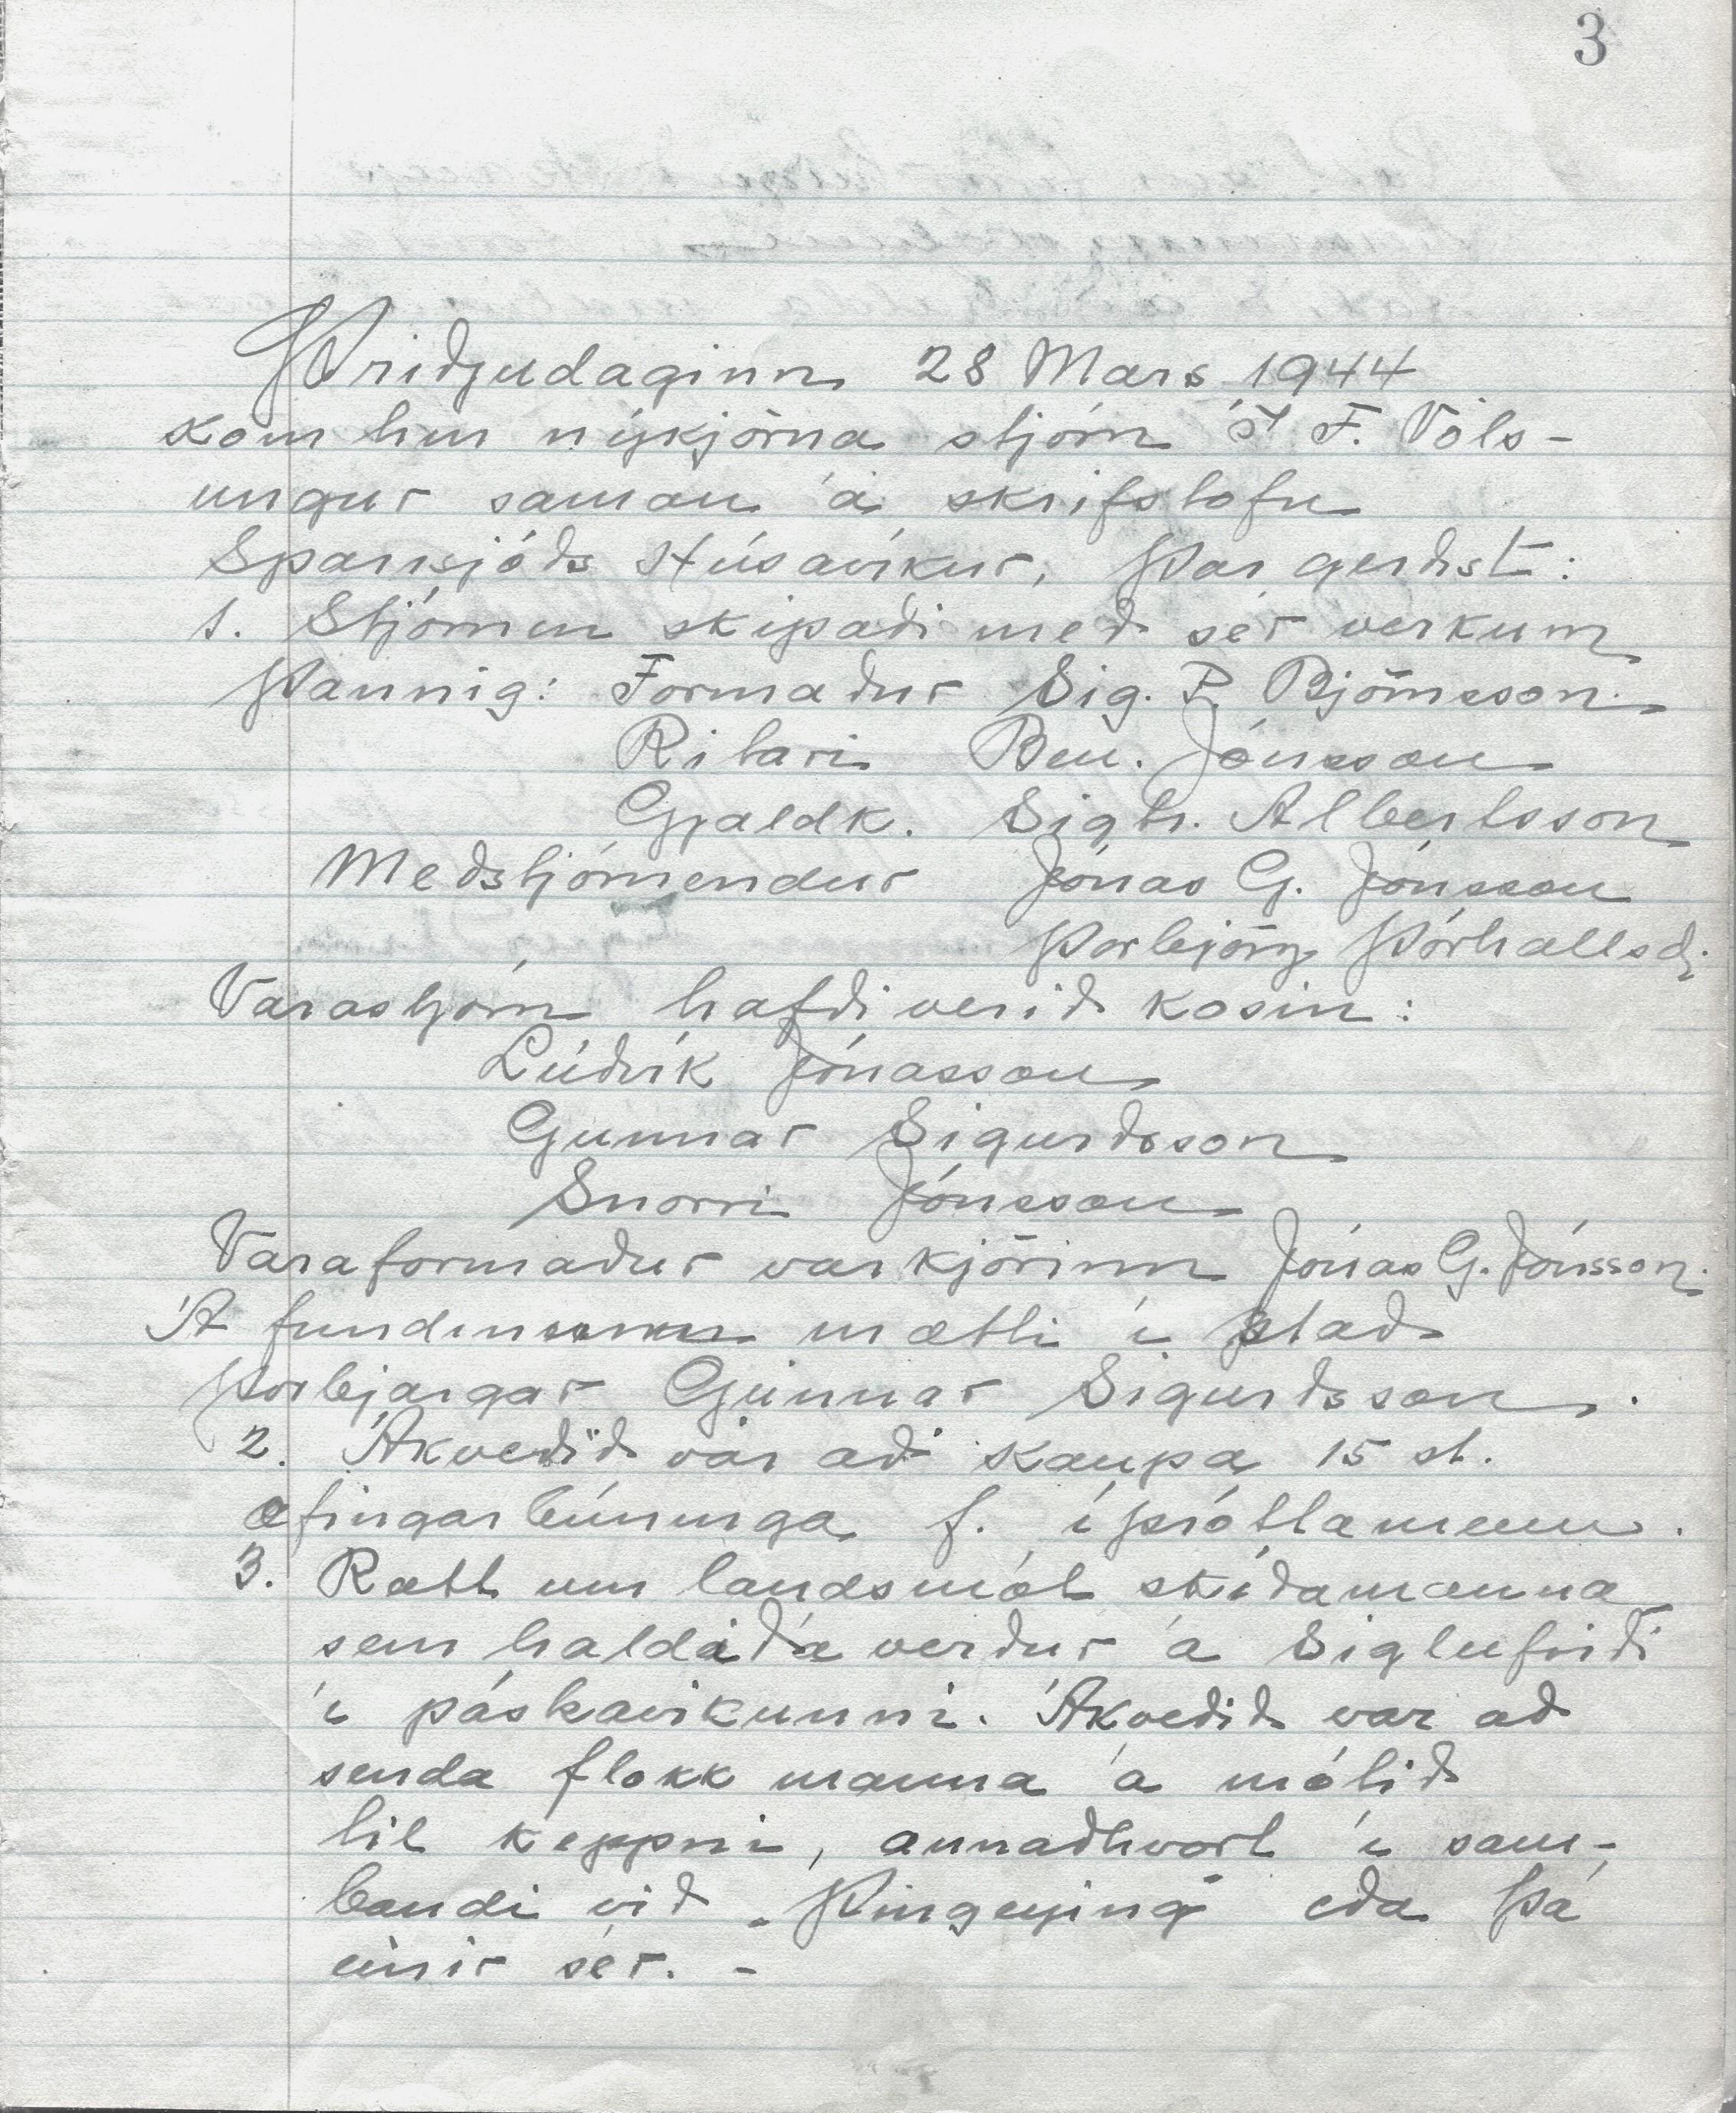 3
Þriðjudaginn 28 Mars 1944
kom hin nýkjörna stjórn Í. F. Völs-
ungur saman á skrifstofu
Sparisjóðs Húsavíkur. Þar gerðist:
1. Stjórnin skipaði með sér verkum
þannig: Formaður Sig. P. Björnsson
Ritari Ben. Jónsson
Gjaldk. Sigtr. Albertsson
Meðstjórnendur Jónas G. Jónsson
Þorbjörg Þórhallsd.
Varastjórn hafði verið kosin:
Lúðvík Jónasson
Gunnar Sigurðsson
Snorri Jónsson
Varaformaður var kjörinn Jónas G. Jónsson.
Á fundinum mætti í stað
Þorbjargar Gunnar Sigurðsson.
2. Ákveðið var að kaupa 15 st.
æfingarbúninga f. íþróttamenn.
3. Rætt um landsmót skíðamanna
sem haldið verður á Siglufirði
í páskavikunni. Ákveðið var að
senda flokk manna á mótið
til keppni, annaðhvort í sam-
bandi við „Þingeying" eða þá
einir sér. -